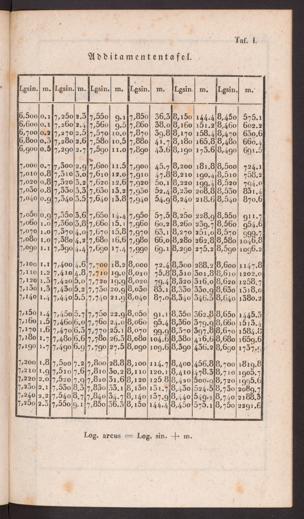 Taf. I.
Additamententafel.
Lgsin. m. Lgsin. m. Lgsin. m. Lgsin. m. Lgsin. m. Lgsin. m.
6,500 0,1 7,250 2,3 7,550 9,1 7,850 36,3 8,150 144,4 8,450 575,1
6,600 0,1 7,260 2,4 7,560 9,5 7,860 38,0 8,160 151,2 8,460 602,2
6,700 0,2 7,270 2,5 7,570 10,0 7,870 39,8 8,170 158,4 8,470 630,6
6,800 0,3 7,280 2,6 7,580 10,5 7,880 41,7 8,180 165,8 8,480 660,4
6,900 0,5 7,290 2,7 7,590 11,0 7,890 43,6 8,190 173,6 8,490 691,5
7,000 0,7 7,300 2,9 7,600 11,5 7,900 45,7 8,200 181,8 8,500 724,1
7,010 0,8 7,310 3,0 7,610 12,0 7,910 47,8 8,210 190,4 8,510 758,2
7,020 0,8 7,320 3,2 7,620 12,6 7,920 50,1 8,220 199,4 8,520 794,0
7,030 0,8 7,330 3,3 7,630 13,2 7,930 52,4 8,230 208,8 8,530 831,4
7,040 0,9 7,340 3,5 7,640 13,8 7,940 54,9 8,240 218,6 8,540 870,6
7,050 0,9 7,350 3,6 7,650 14,4 7,950 57,5 8,250 228,9 8,550 911,7
7,060 1,0 7,360 3,8 7,660 15,1 7,960 60,2 8,260 239,7 8,560 954,6
7,070 1,0 7,370 4,0 7,670 15,8 7,970 63,1 8,270 251,0 8,570 999,7
7,080 1,0 7,380 4,2 7,680 16,6 7,980 66,0 8,280 262,8 8,580 1046,8
7,090 1,1 7,390 4,4 7,690 17,4 7,990 69,1 8,290 275,2 8,590 1096,2
7,100 1,1 7,400 4,6 7,700 18,2 8,000 72,4 8,300 288,2 8,600 1147,8
7,110 1,2 7,410 4,8 7,710 19,0 8,010 75,8 8,310 301,8 8,610 1202,0
7,120 1,3 7,420 5,0 7,720 19,9 8,020 79,4 8,320 316,0 8,620 1258,7
7,130 1,3 7,430 5,2 7,730 20,9 8,030 83,1 8,330 330,9 8,630 1318,0
7,140 1,4 7,440 5,5 7,740 21,9 8,040 87,0 8,340 346,5 8,640 1380,2
7,150 1,4 7,450 5,7 7,750 22,9 8,050 91,1 8,350 362,8 8,650 1445,3
7,160 1,5 7,460 6,0 7,760 24,0 8,060 95,4 8,360 379,9 8,660 1513,5
7,170 1,6 7,470 6,3 7,770 25,1 8,070 99,9 8,370 397,8 8,670 1584,8
7,180 1,7 7,480 6,6 7,780 26,3 8,080 104,6 8,380 416,6 8,680 1659,6
7,190 1,7 7,490 6,9 7,790 27,5 8,090 109,6 8,390 436,2 8,690 1737,9
7,200 1,8 7,500 7,2 7,800 28,8 8,100 114,7 8,400 456,8 8,700 1819,8
7,210 1,9 7,510 7,6 7,810 30,2 8,110 120,1 8,410 478,3 8,710 1905,7
7,220 2,0 7,520 7,9 7,820 31,6 8,120 125,8 8,420 500,9 8,720 1995,6
7,230 2,1 7,530 8,3 7,830 33,1 8,130 131,7 8,430 524,5 8,730 2089,7
7,240 2,2 7,540 8,7 7,840 34,7 8,140 137,9 8,440 549,2 8,740 2188,3
7,250 2,3 7,550 9,1 7,850 36,3 8,150 144,4 8,450 575,1 8,750 2291,6
Log. arcus = Log. sin. + m.